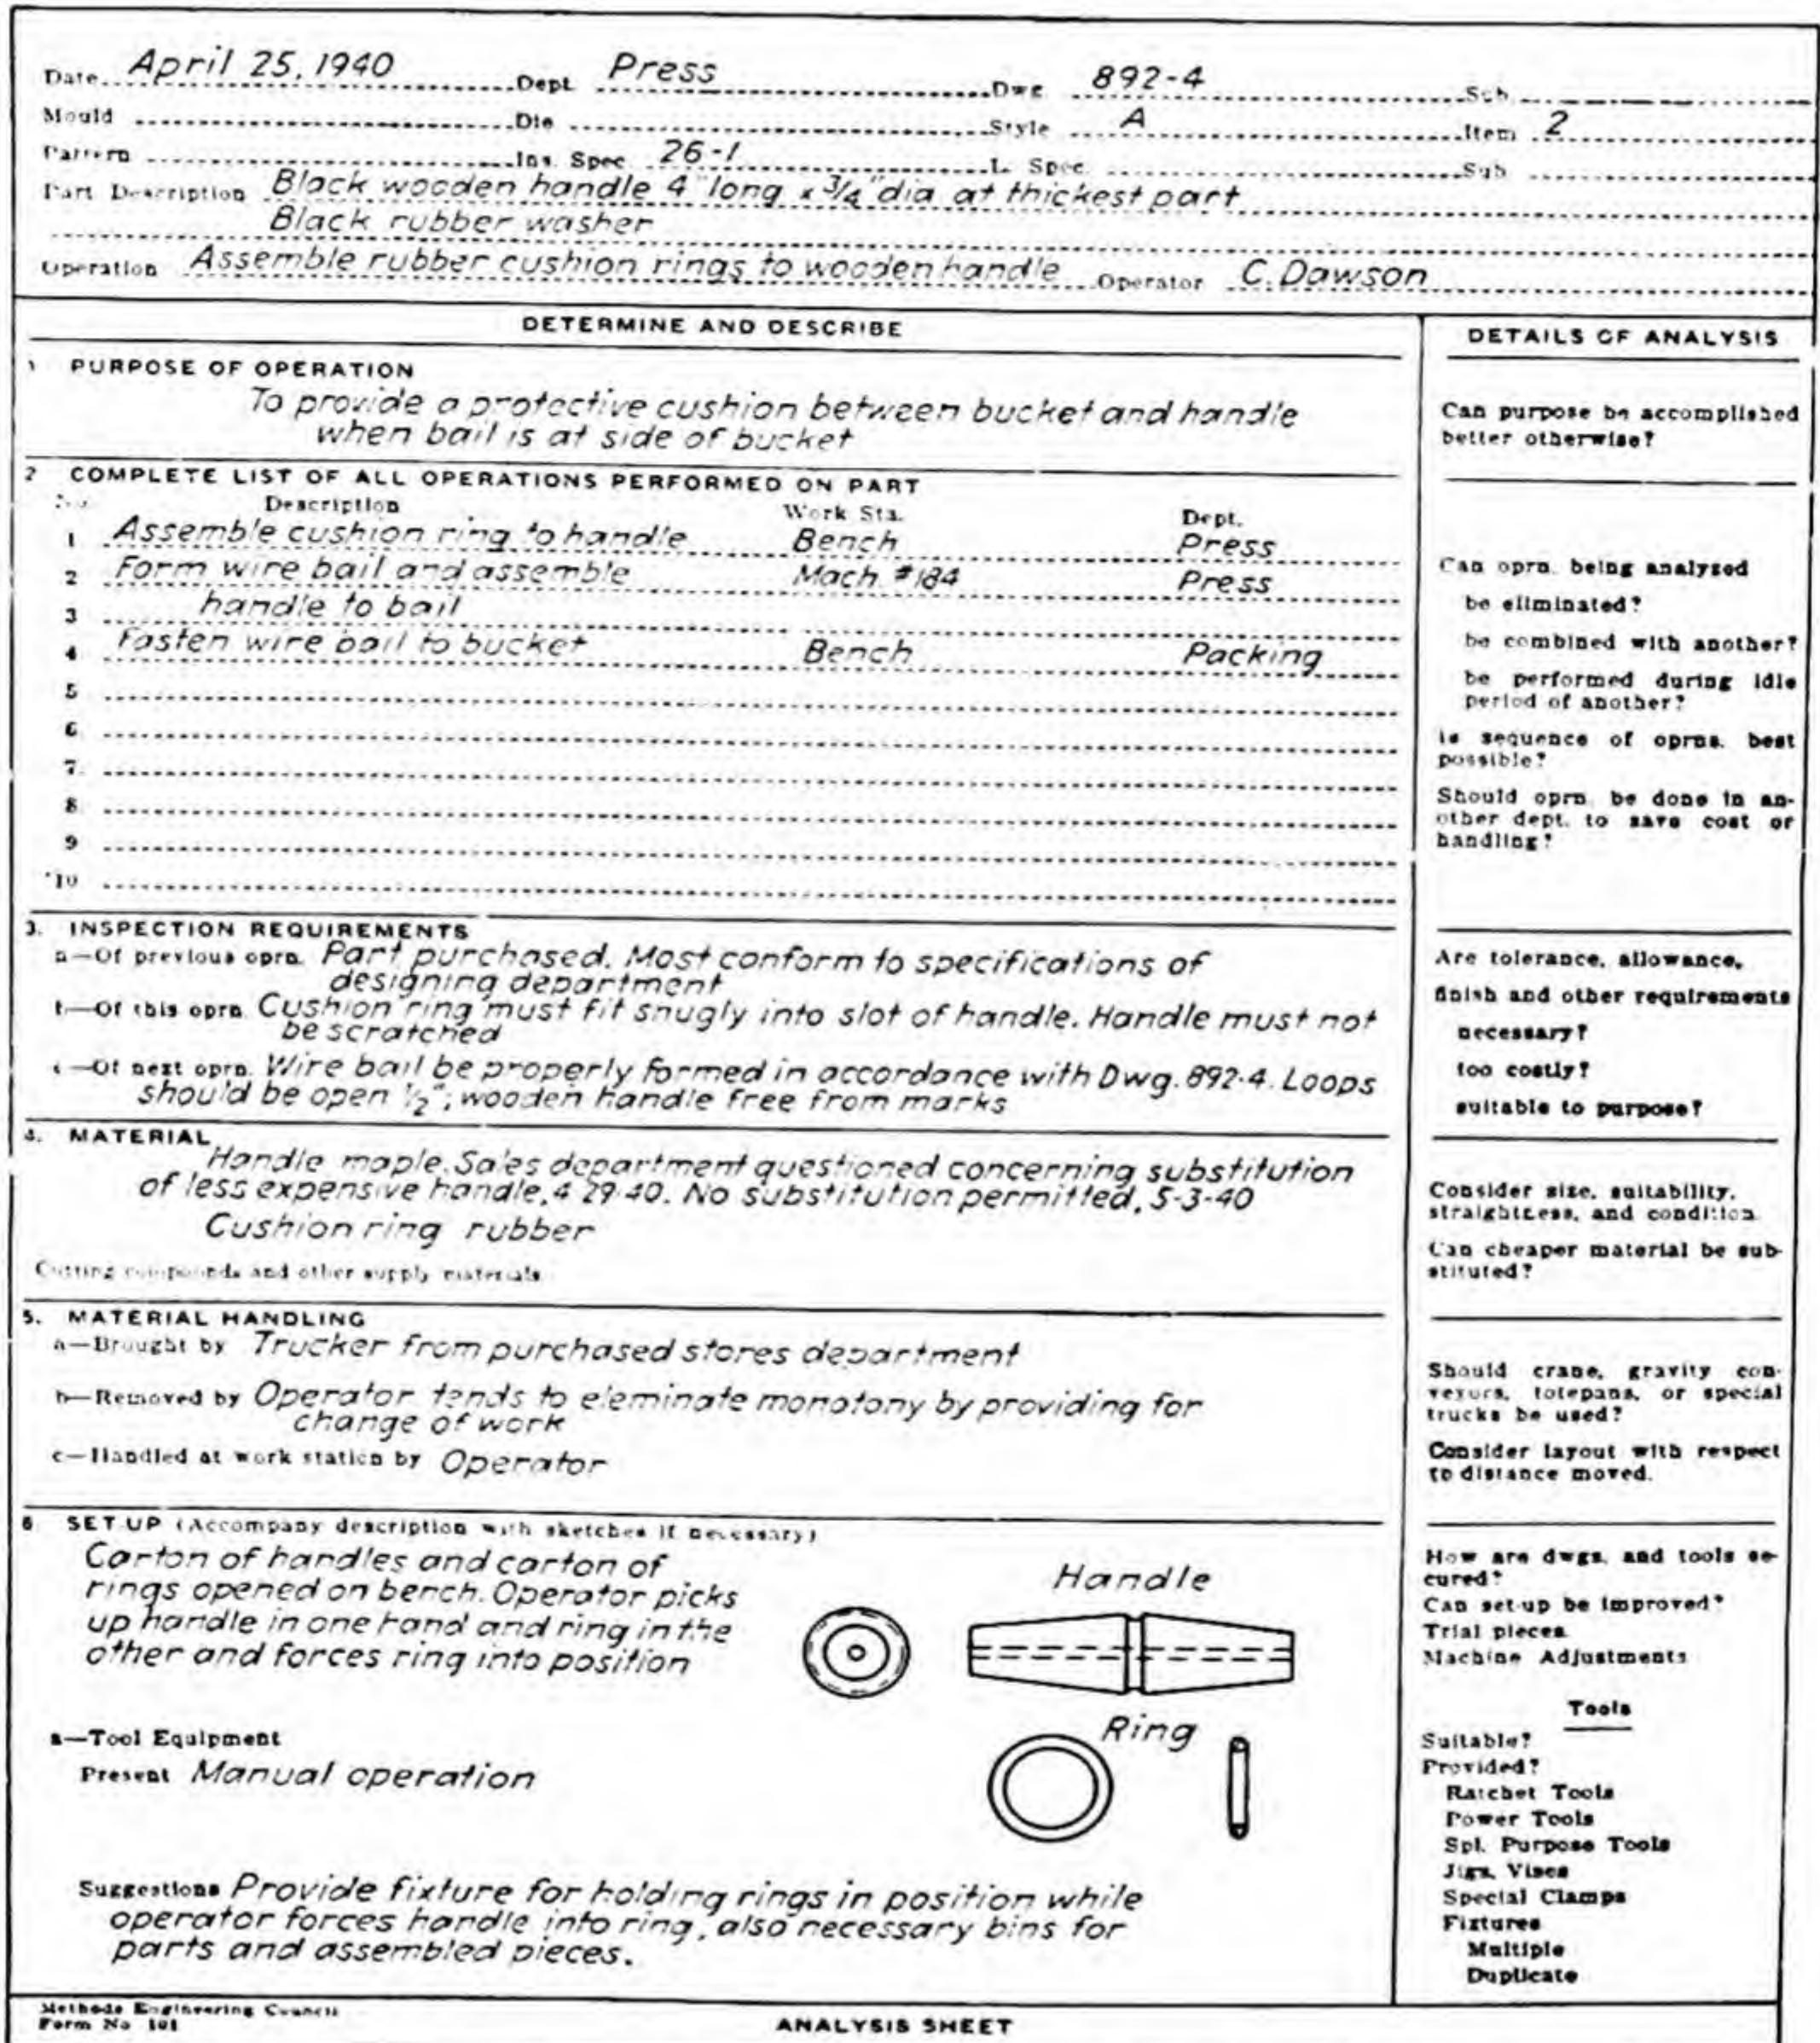 Date April 25, 1940 Dept. Press Dwg. 892-4 Sub.
Mould Die Style A Item 2
Pattern Ins. Spec. 26-1 L. Spec. Sub.
Part Description Black wooden handle 4" long x 3/4" dia at thickest part
Black rubber washer
Operation Assemble rubber cushion rings to wooden handle Operator C. Dawson
DETERMINE AND DESCRIBE
1 PURPOSE OF OPERATION
To provide a protective cushion between bucket and handle
when bail is at side of bucket
2 COMPLETE LIST OF ALL OPERATIONS PERFORMED ON PART
No. Description Work Sta. Dept.
1 Assemble cushion ring to handle Bench Press
2 Form wire bail and assemble Mach #184 Press
3 handle to bail
4 Fasten wire bail to bucket Bench Packing
5
6
7.
8
9
10
3. INSPECTION REQUIREMENTS
a—Of previous oprn. Part purchased. Most conform to specifications of
designing department
b—Of this oprn. Cushion ring must fit snugly into slot of handle. Handle must not
be scratched
c—Of next oprn. Wire bail be properly formed in accordance with Dwg. 892-4. Loops
should be open 1/2", wooden handle free from marks
4. MATERIAL
Handle maple. Sales department questioned concerning substitution
of less expensive handle, 4-29-40. No substitution permitted, 5-3-40
Cushion ring rubber
Cutting compounds and other supply materials
5. MATERIAL HANDLING
a—Brought by Trucker from purchased stores department
b—Removed by Operator tends to eleminate monotony by providing for
change of work
c—Handled at work station by Operator
6 SET-UP (Accompany description with sketches if necessary)
Carton of handles and carton of
rings opened on bench. Operator picks
up handle in one hand and ring in the
other and forces ring into position
Handle
Ring
a—Tool Equipment
Present Manual operation
Suggestions Provide fixture for holding rings in position while
operator forces handle into ring, also necessary bins for
parts and assembled pieces.
DETAILS OF ANALYSIS
Can purpose be accomplished
better otherwise?
Can oprn. being analyzed
be eliminated?
be combined with another?
be performed during idle
period of another?
Is sequence of oprns. best
possible?
Should oprn. be done in an-
other dept. to save cost or
handling?
Are tolerance, allowance,
finish and other requirements
necessary?
too costly?
suitable to purpose?
Consider size, suitability,
straightness, and condition.
Can cheaper material be sub-
stituted?
Should crane, gravity con-
veyors, totepans, or special
trucks be used?
Consider layout with respect
to distance moved.
How are dwgs. and tools se-
cured?
Can set-up be improved?
Trial pieces
Machine Adjustments
Tools
Suitable?
Provided?
Ratchet Tools
Power Tools
Spl. Purpose Tools
Jigs, Vises
Special Clamps
Fixtures
Multiple
Duplicate
Methods Engineering Council
Form No 101
ANALYSIS SHEET